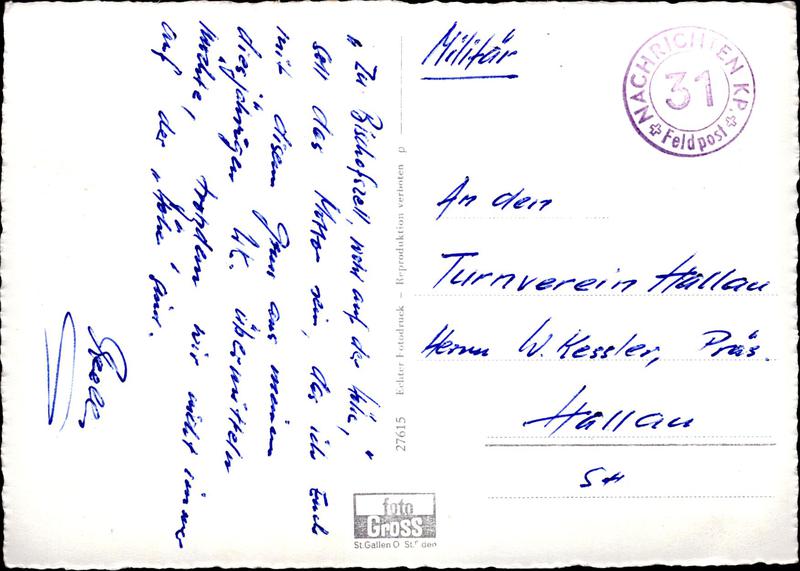 „Zu Bischofszell, wohl auf der Höh,“
soll das Motto sein, das ich Euch
mit disem Gruss aus meinem
diesjährigen WK. übermitteln
möchte, trotzdem wir nicht immer
auf der „Höhe“ sind.
27615 Echter Fotodruck – Reproduktion verboten p
foto
Gross
St.Gallen O St.Fiden
Militär
NACHRICHTEN KP.
31
Feldpost
An den
Turnverein Hallau
Herrn W. Kessler, Präs.
Hallau
SH